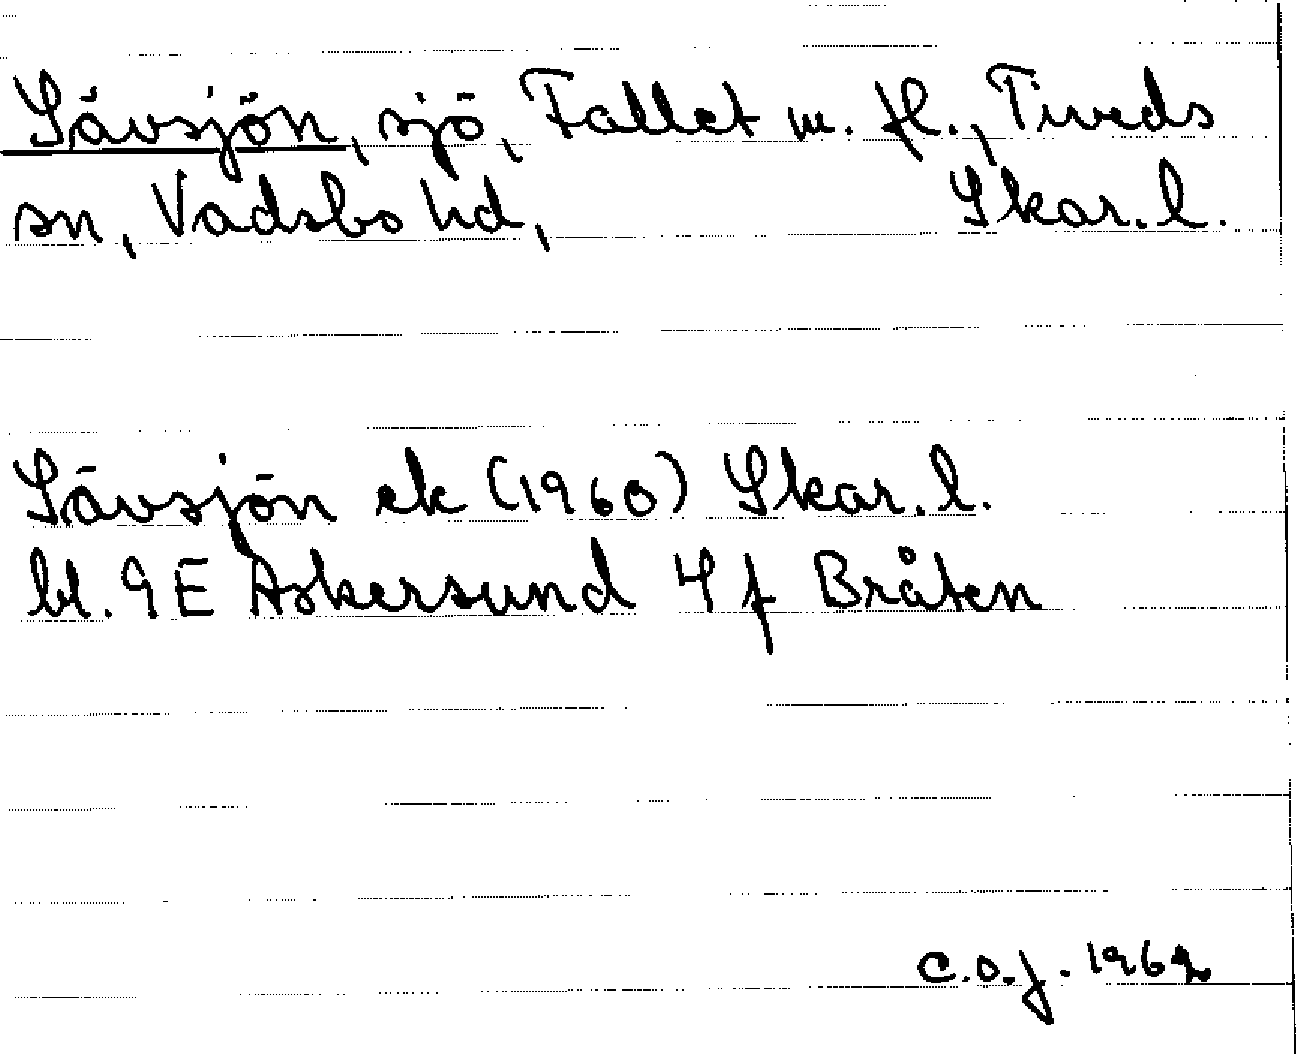 Sävsjön, sjö, Fallet m. fl., Tiveds
sn, Vadsbo hd, Skar. l.
Sävsjön ek (1960) Skar. l.
bl. 9E Askersund 4f Bråten
C.O.J. 1969